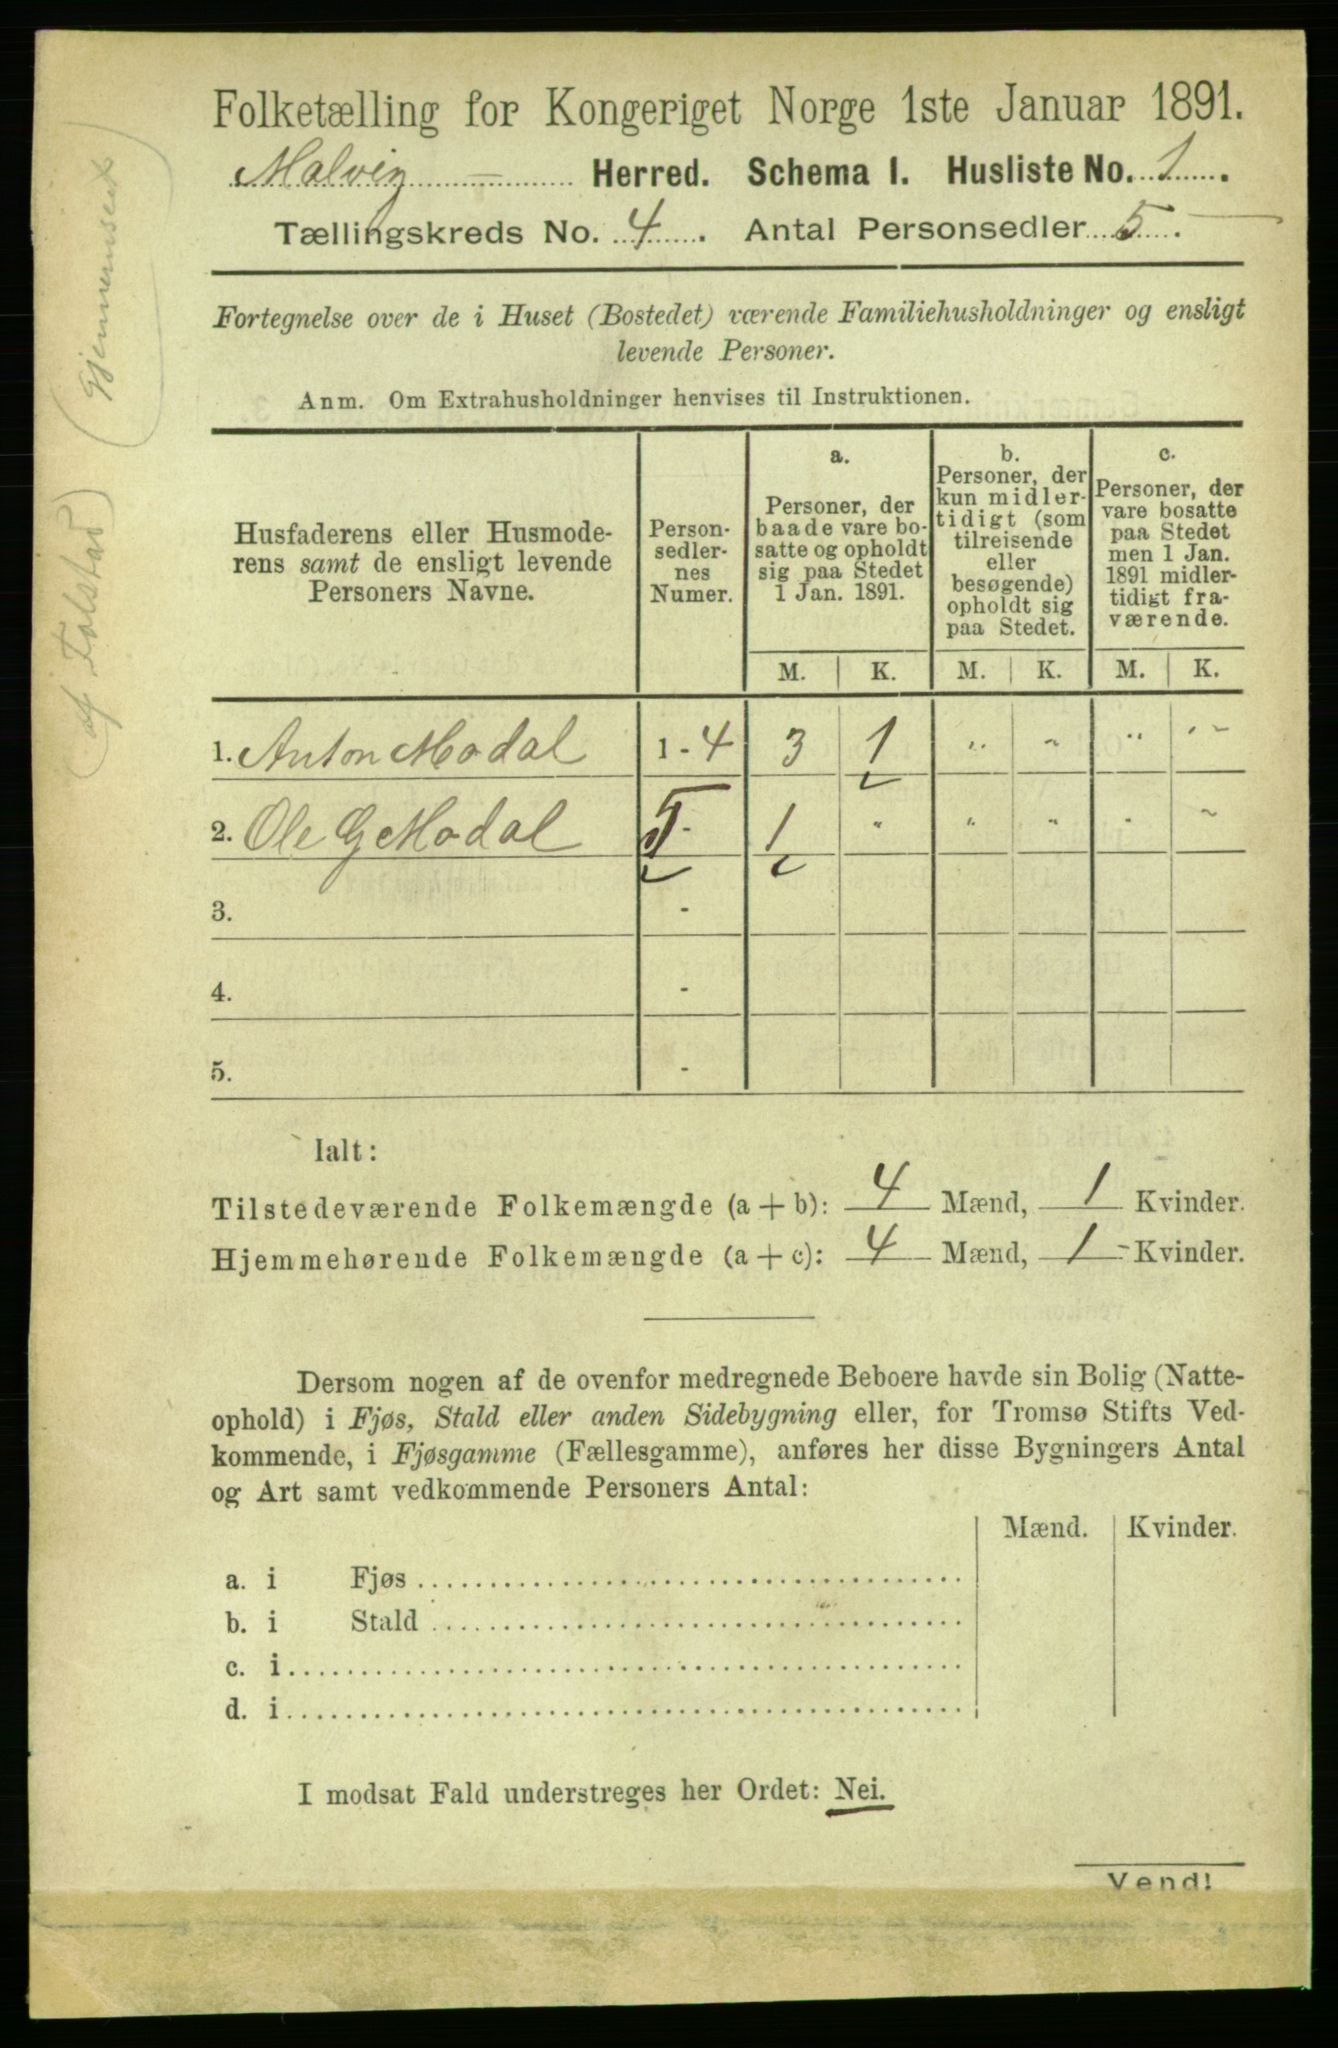 Folketælling for Kongeriget Norge 1ste Januar 1891.
Malvig Herred. Schema I. Husliste No. 1.
Tællingskreds No. 4. Antal Personsedler 5.
Fortegnelse over de i Huset (Bostedet) værende Familiehusholdninger og ensligt
levende Personer.
Anm. Om Extrahusholdninger henvises til Instruktionen.
Husfaderens eller Husmode-
rens samt de ensligt levende
Personers Navne.
Person-
sedler-
nes
Numer.
a.
Personer, der
baade vare bo-
satte og opholdt
sig paa Stedet
1 Jan. 1891.
b.
Personer, der
kun midler-
tidigt (som
tilreisende
eller
besøgende)
opholdt sig
paa Stedet.
c.
Personer, der
vare bosatte
paa Stedet
men 1 Jan.
1891 midler-
tidigt fra-
værende.
M. K. M. K. M. K.
1. Anton Modal 1 - 4 3 1 " " " "
2. Ole G Modal 5 - 1 " " " " "
3. -
4. -
5. -
Ialt:
Tilstedeværende Folkemængde (a + b): 4 Mænd, 1 Kvinder.
Hjemmehørende Folkemængde (a + c): 4 Mænd, 1 Kvinder.
Dersom nogen af de ovenfor medregnede Beboere havde sin Bolig (Natte-
ophold) i Fjøs, Stald eller anden Sidebygning eller, for Tromsø Stifts Ved-
kommende, i Fjøsgamme (Fællesgamme), anføres her disse Bygningers Antal
og Art samt vedkommende Personers Antal:
Mænd. Kvinder.
a. i Fjøs
b. i Stald
c. i
d. i
I modsat Fald understreges her Ordet: Nei.
Vend!
(af Folstad)
(Gjennemseet)